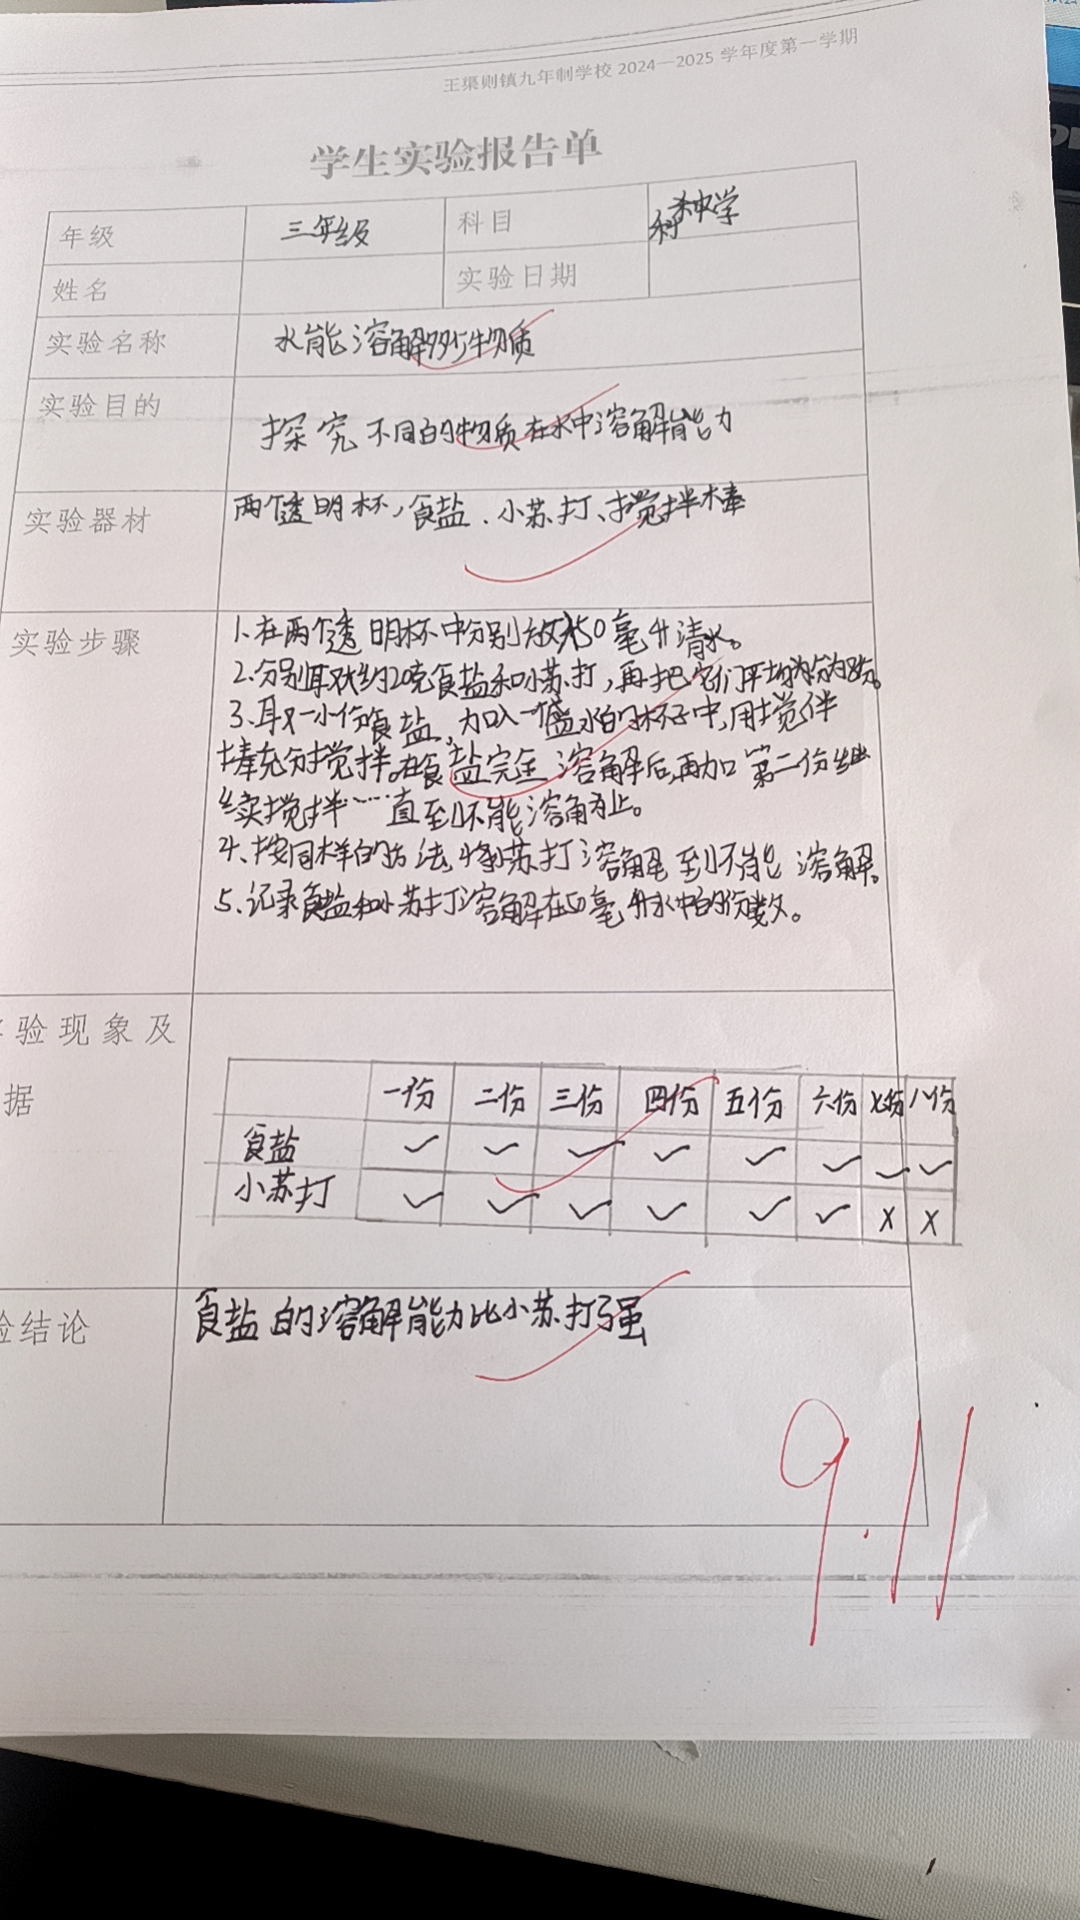 王渠则镇九年制学校 2024—2025 学年度第一学期
学生实验报告单
年级 三年级 科目 科学
姓名 实验日期
实验名称 水能溶解多少物质
实验目的 探究不同的物质在水中溶解能力
实验器材 两个透明杯，食盐、小苏打、搅拌棒
实验步骤 1、在两个透明杯中分别放入50毫升清水。
2、分别取大约20克食盐和小苏打，再把它们平均分为8份。
3、取一小份食盐，加入一盛水的杯子中，用搅伴
棒充分搅拌。在食盐完全溶解后，再加第二份继
续实搅拌……直至到不能溶解为止。
4、按同样的方法，将小苏打溶解至到不能溶解。
5、记录食盐和小苏打溶解在50毫升水中的份数。
验现象及
据
一份 二份 三份 四份 五份 六份 七份 八份
食盐 ✓ ✓ ✓ ✓ ✓ ✓ ✓ ✓
小苏打 ✓ ✓ ✓ ✓ ✓ ✓ X X
验结论 食盐的溶解能力比小苏打强
9.11